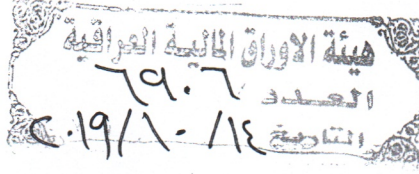 هيئة الاوراق المالية العراقية
العدد ٦٩٠٦
التاريخ ٢٠١٩/١٠/١٤